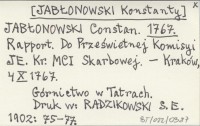 [JABŁONOWSKI Konstanty] x
JABŁONOWSKI Constan. 1767.
Rapport. Do Prześwietnej Komisyi
JE. Kr: MCI Skarbowej. — Kraków,
4 X 1767.
Górnictwo w Tatrach.
Druk w: RADZIKOWSKI S.E.
1902: 75-77.